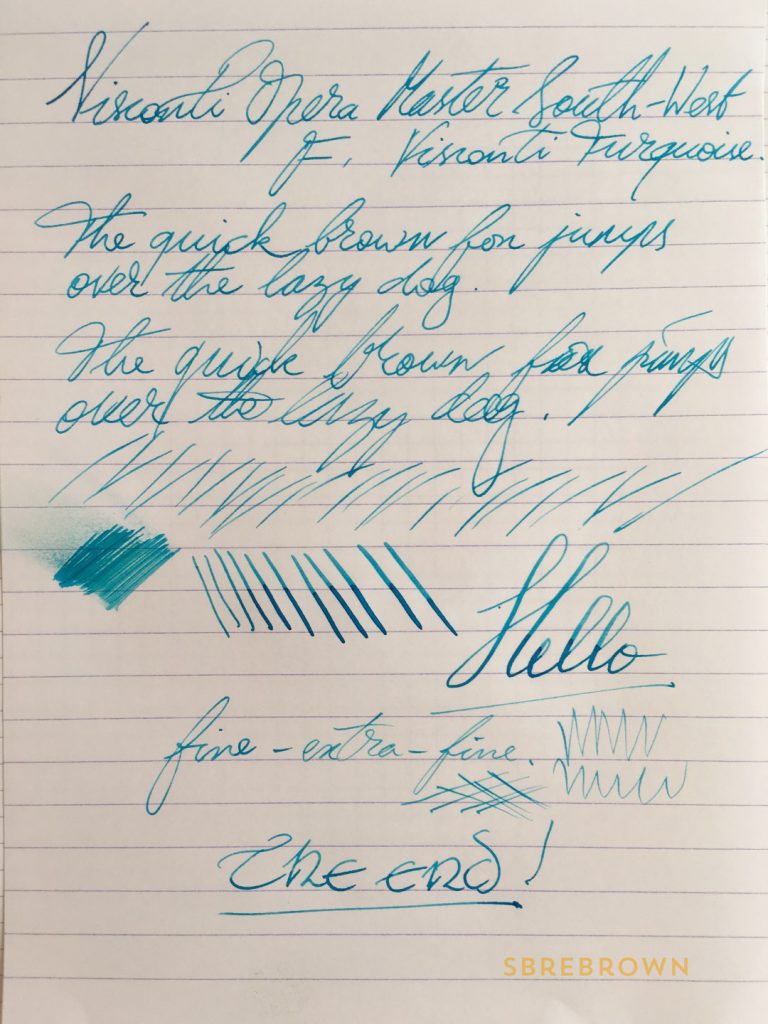 Visconti Opera Master South-West
F, Visconti Turquoise.
The quick brown fox jumps
over the lazy dog.
The quick brown fox jumps
over the lazy dog.
Hello
fine - extra - fine.
THE END!
SBREBROWN